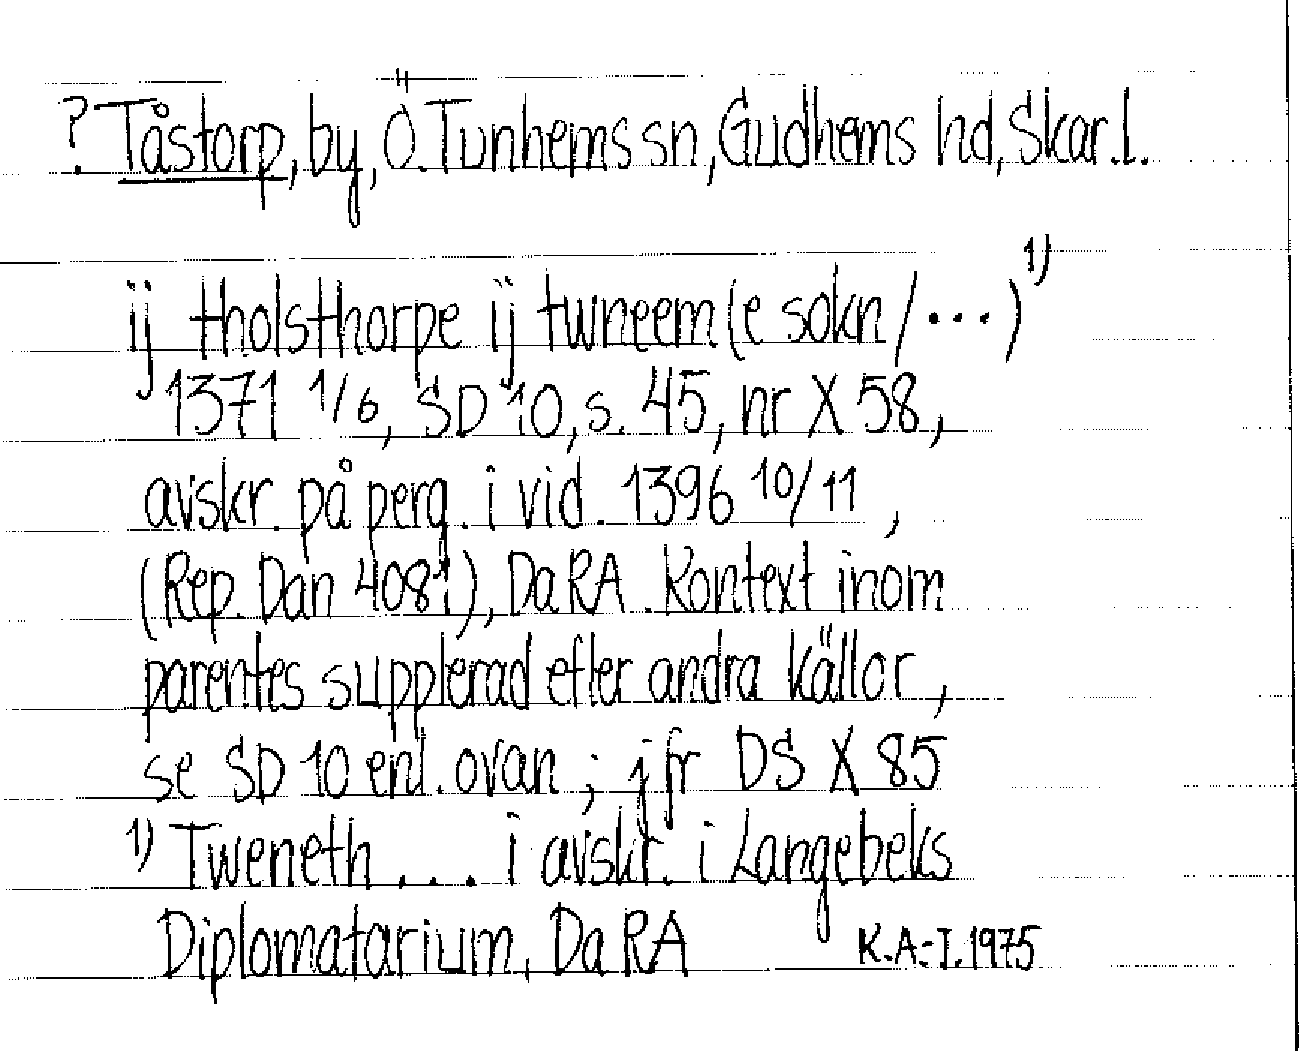 ? Tåstorp, by, Ö. Tunhems sn, Gudhems hd, Skar. l.
ij tholsthorpe ij twneem (e sokn / ...) 1)
1371 1/6, SD 10, s. 45, nr X 58,
avskr. på perg. i vid. 1396 10/11,
(Rep. Dan 4081), DaRA. Kontext inom
parentes supplerad efter andra källor,
se SD 10 enl. ovan; jfr DS X 85
1) Tweneth... i avskr. i Langebeks
Diplomatarium, DaRA K.A.-I. 1975